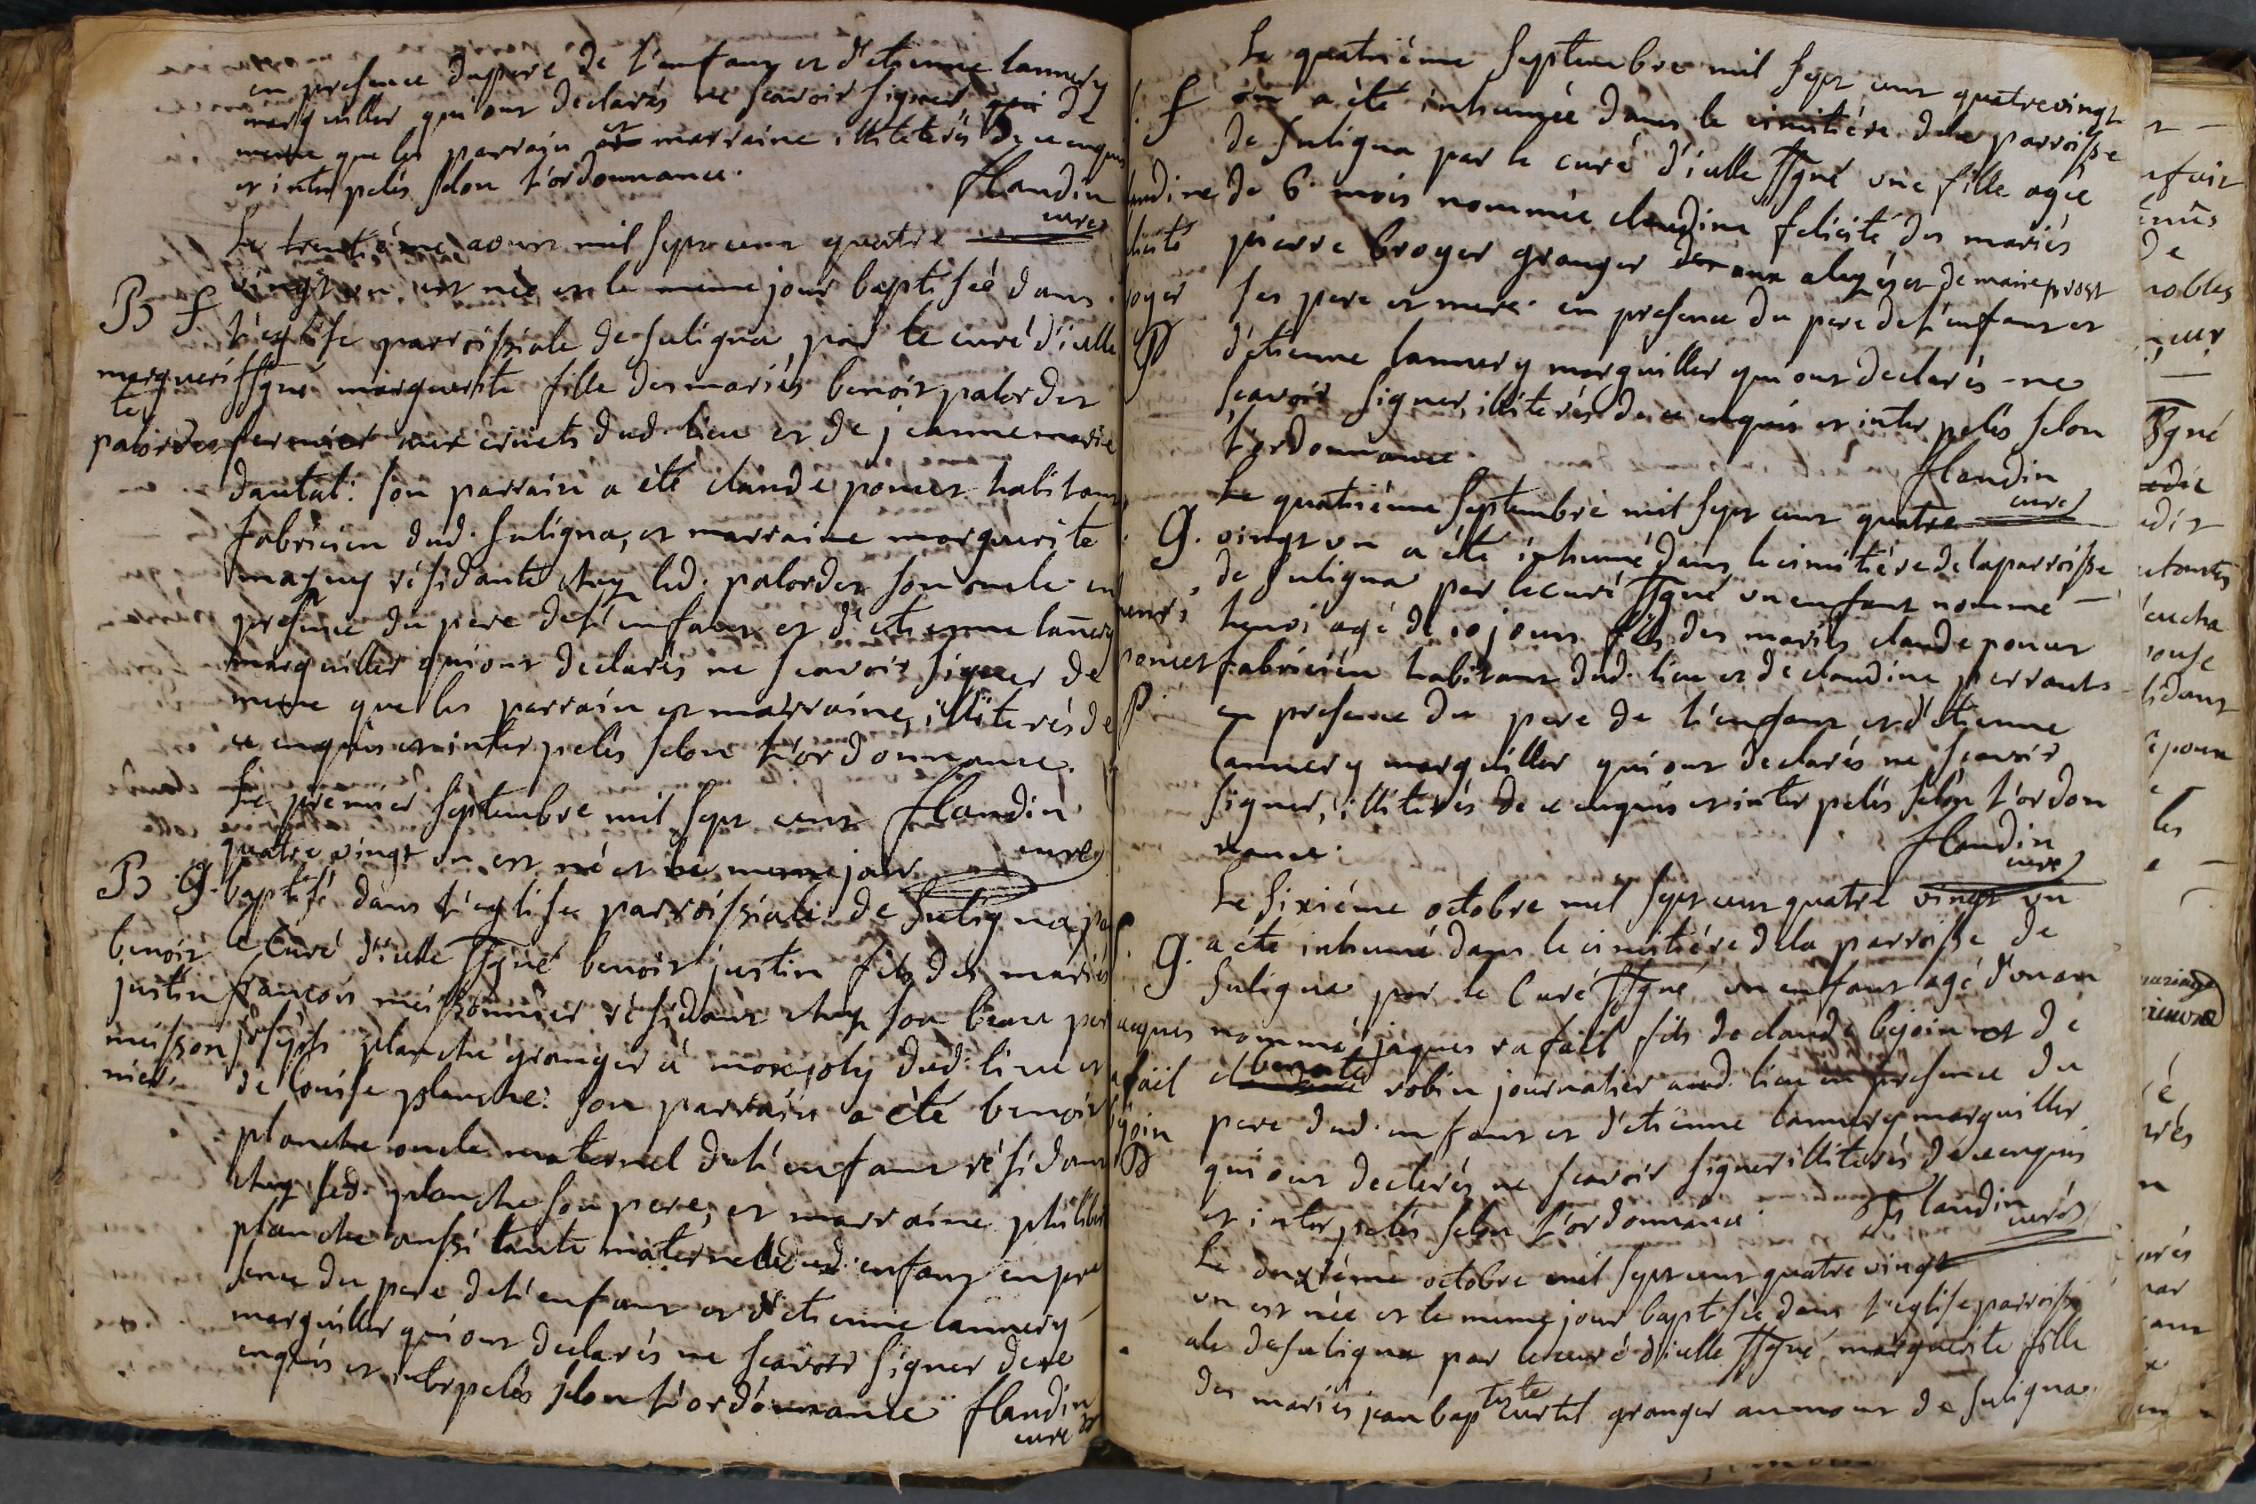 en presence du pere de l'enfant et d'etienne lannery
marguiller qui ont declarés ne scavoir signer de
meme que les parrain et marraine illiterés de ce enquis
et interpelés selon l'ordonnance.
flandin
curé
Le trentiéme aoust mil sept cent quatre
B f vingt un est née et le meme jour baptisée dans
l'eglise parroissiale de Suligna, par le curé d'icelle
margueri ssgné marguerite fille des mariés benoit palordet
te
palordet fermier aux cruets dud. lieu et de jeanne marie
dautal: son parrain a été claude poncet habitant
fabricien dud. Suligna, et marraine marguerite
magny résidante chez led. palordet son oncle en
presence du pere de l'enfant et d'etienne lannery
marguiller qui ont declarés ne scavoir signer de
meme que les parrain et marraine, illiterés de
ce enquis et interpelés selon l'ordonnance.
flandin
curé
Le premier septembre mil sept cent
quatre vingt un est né et le meme jour
B g. baptisé dans l'eglise parroissiale de Suligna, pa
benoit le Curé d'icelle ssgné benoit justin fils des mariés
justin francois meissonnier résidant chez son beau per
meisson joseph planche granger à monjoly dud. lieu et
nier de louise planche: son parrain a été benoit
planche oncle maternel de l'enfant résidant
chez led. planche son pere, et marraine philibe
planche aussi tante maternelle dud. enfant en pre
sence du pere de l'enfant et d'etienne lannery
marguiller qui ont declarés ne scavoir signer de ce
enquis et interpelés selon l'ordonnance flandin
curé
Le quatriéme septembre mil sept cent quatrevingt
f un a été inhumée dans le cimitiére de la parroisse
de Suligna par le curé d'icelle ssgné une fille agée
audine de 6. mois nommée claudine felicité des mariés
licité pierre broyer granger aux aleyés et de marie prost
royer ses pere et mere en presence du pere de l'enfant et
d'etienne lannery marguiller qui ont declarés ne
scavoir signer, illiterés de ce enquis et interpelés selon
l'ordonnance
flandin
curé
Le quatriéme septembre mil sept cent quatre
g. vingt un a été inhumé dans le cimitiére de la parroisse
de Suligna par le curé ssgné un enfant nommé
henri henri agé de 10 jours fils des mariés claude poncet
poncet fabricien habitant dud. lieu et de claudine perraut
en presence du pere de l'enfant et d'etienne
lannery marguiller qui ont declarés ne scavoir
signer, illiterés de ce enquis et interpelés selon l'ordon
nance.
flandin
curé
Le sixiéme octobre mil sept cent quatre vingt un
g. a été inhumé dans le cimitiére de la parroisse de
Suligna par le Curé ssgné un enfant agé d'un an
acques nommé jaques rafaël fils de claude bejoin et de
afaël benoite robin journalier aud. lieu en presence du
ejoin pere dud. enfant et d'etienne lannery marguiller
qui ont declarés ne scavoir signer illiterés de ce enquis
et interpelés selon l'ordonnance
flandin
curé
Le dixiéme octobre mil sept cent quatre vingt
un est née et le meme jour baptisée dans l'eglise parroissi
ale de Suligna par le curé d'icelle ssgné marguerite fille
des mariés jean baptiste curtil granger au mont de Suligna